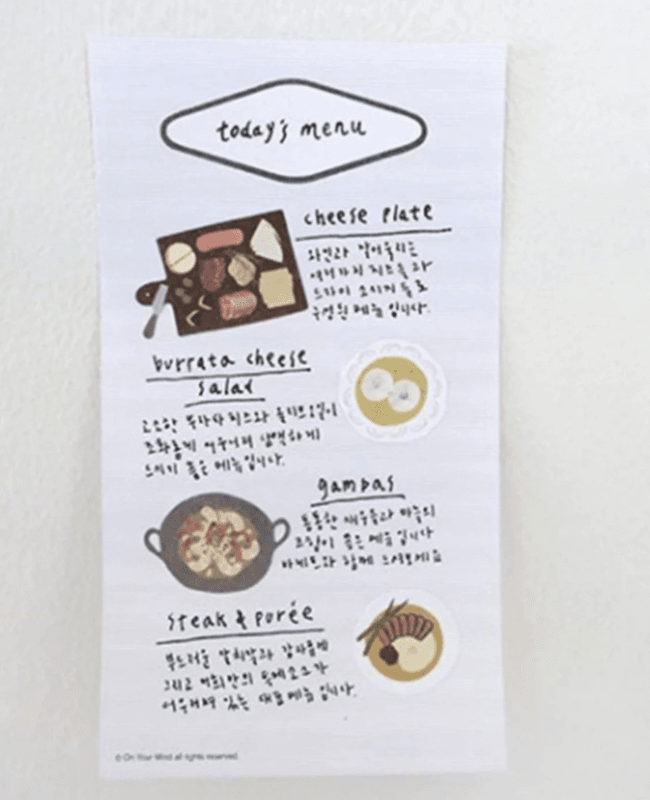 today's menu
cheese plate
와인과 잘 어울리는
여러가지 치즈들과
드라이 소시지 등으로
구성된 메뉴 입니다.
burrata cheese
salad
고소한 부라타치즈와 올리브오일이
조화롭게 어우러져 담백하게
드시기 좋은 메뉴입니다.
gambas
통통한 새우들과 마늘의
조합이 좋은 메뉴 입니다
바게트와 함께 드셔보세요
steak & purée
부드러운 안심과
그리고 저희만의 소스가
어우러져 있는 대표 메뉴 입니다.
© On Your Mind all rights reserved.